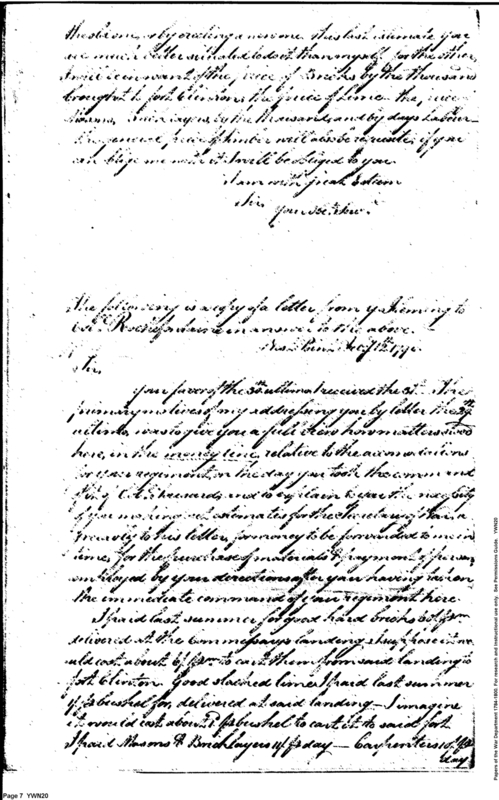 this one, or by erecting a new one. this last estimate you
are much better situated to do it than myself. for the other,
I will be in want of the price of Bricks by the thousand
brought to fort Clinton, the price of Lime, the price
Masons, Brick layers by the thousand, and by days Labour
The general price of timber will also be requisite; if you
can oblige me with it I will be obliged to you.
I am with great Esteem
Sir
your
The following is a copy of a letter from G. Fleming to
Col. Rochefontaine in answer to the above.
West Point
Sir
Your favor of the 30th ultimo I received the 31st. The
primary motives of my addressing you by letter the 29th
ultimo, was to give you a full view how matters stood
here, in the money line, relative to the accommodations
for your regiment, on the day you took the command
and to explain to you the necessity
of you making out estimates for the Secretary of War
for money to be forwarded to me in
time, for the purchase of materials & payment of persons
employed by your directions after you having taken
the immediate command of your regiment here.
I paid last summer for good hard bricks
delivered at the Commissarys landing, I suppose it wo
uld cost about 6/ to cart them from said landing to
fort Clinton. Good slacked lime I paid last summer
bushel for, delivered at said landing — I imagine
it would cost about bushel to cart it to said fort
I paid Masons & Bricklayers day — Carpenters
day
Page 7 YWN20
Papers of the War Department 1784-1800. For research and instructional use only. See Permissions Guide. YWN20